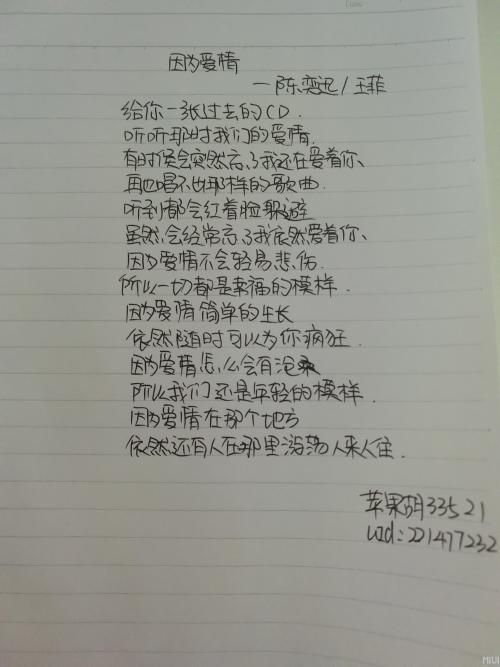 因为爱情
—陈奕迅/王菲
给你一张过去的CD.
听听那时我们的爱情.
有时侯会突然忘了我还在爱着你、
再也唱不出那样的歌曲.
听到都会红着脸躲避
虽然会经常忘了我依然爱着你、
因为爱情不会轻易悲伤.
所以一切都是幸福的模样.
因为爱情简单的生长
依然随时可以为你疯狂.
因为爱情怎么会有沧桑
所以我们还是年轻的模样.
因为爱情在那个地方
依然还有人在那里游荡人来人往.
苹果胡33521
uid:221477232
MIUI